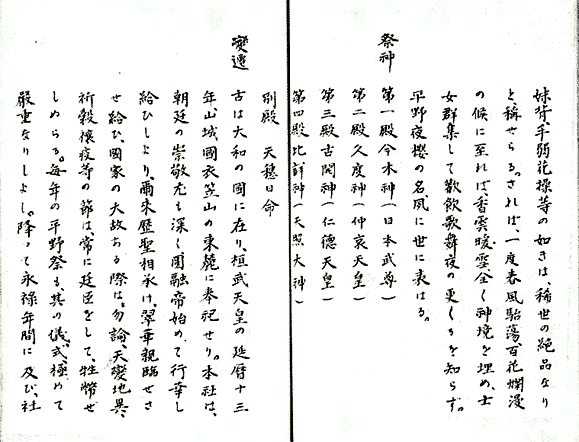 妹背、手弱、花操等の如きは、稀世の絶品なり
と稱せらる。されば、一度春風駘蕩、百花爛漫
の候に至れば、香雲暖雪全く神境を埋め、士
女群集して歡飲歌舞夜の更くるを知らず。
平野夜櫻の名、夙に世に表はる。
祭神
第一殿今木神(日本武尊)
第二殿久度神(仲哀天皇)
第三殿古開神(仁德天皇)
第四殿比咩神(天照大神)
別殿 天穗日命
變遷
古は大和の國に在り、桓武天皇の延曆十三
年山城國衣笠山の東麓に奉祀せり。本社は、
朝廷の崇敬尤も深く圓融帝始めて行幸し
給ひしより、爾来歷聖相承け、翠華親臨せさ
せ給ひ、國家の大故ある際は、勿論天變地異、
祈穀禳疫等の節は、常に廷臣をして、牲幣せ
しめらる。每年の平野祭も、其の儀式、極めて
嚴重なりしよし。降つて永祿年間に及び、社